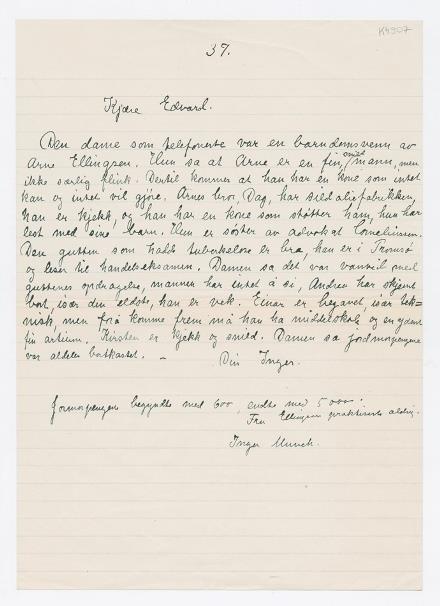 K4907
37.
Kjære Edvard.
Den dame som telefonerte var en barndomsvenn av
Arne Ellingsen. Hun sa at Arne er en fin, snild mann, men
ikke særlig flink. Dertil kommer at han har en kone som intet
kan og intet vil gjøre. Arnes bror, Dag, har sildoljefabrikken,
han er kjekk, og han har en kone som støtter ham, hun har
lest med sine barn. Hun er søster av advokat Corneliussen.
Den gutten som hadde tuberkelose er bra, han er i Tromsø
og leser til handelseksamen. Damen sa det var vanstil med
guttenes opdragelse, mannen har intet å si, Andrea har skjemt
bort, især den eldste, han er vek. Einar er begavet, især tek=
nisk, men for å komme frem må han ha middelskole og en ydent
fin artium. Kirsten er kjekk og snild. Damen sa jordmorpengene
var aldeles bortkastet. –
Din Inger.
Jormorpengene begynte med 600, endte med 5000.
Fru Ellingsen praktiserte aldrig.
Inger Munch.